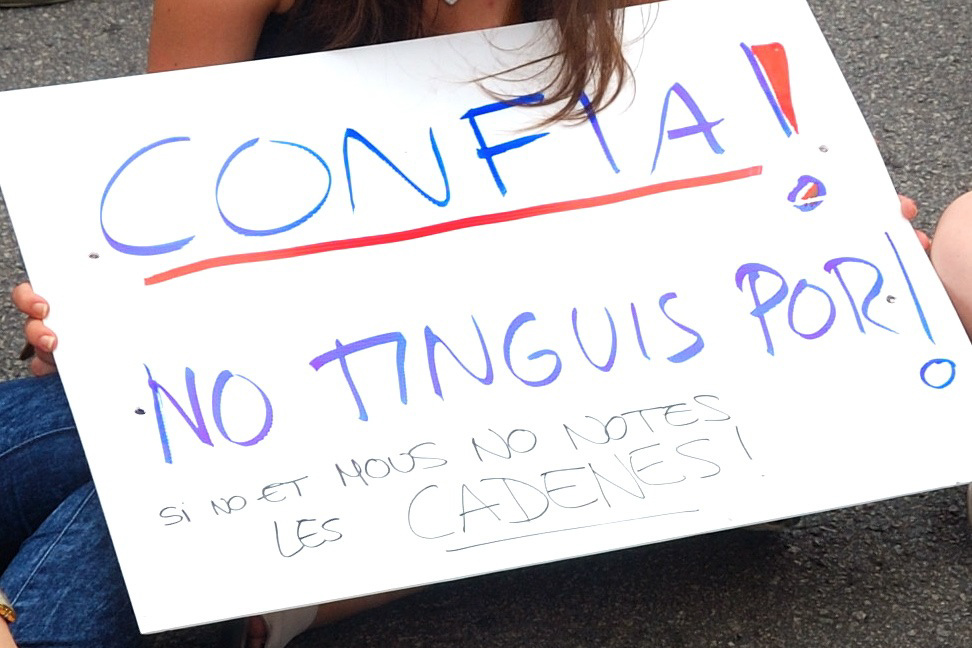 CONFIA!
NO TINGUIS POR!
Si NO ET MOUS NO NOTES
LES CADENES!